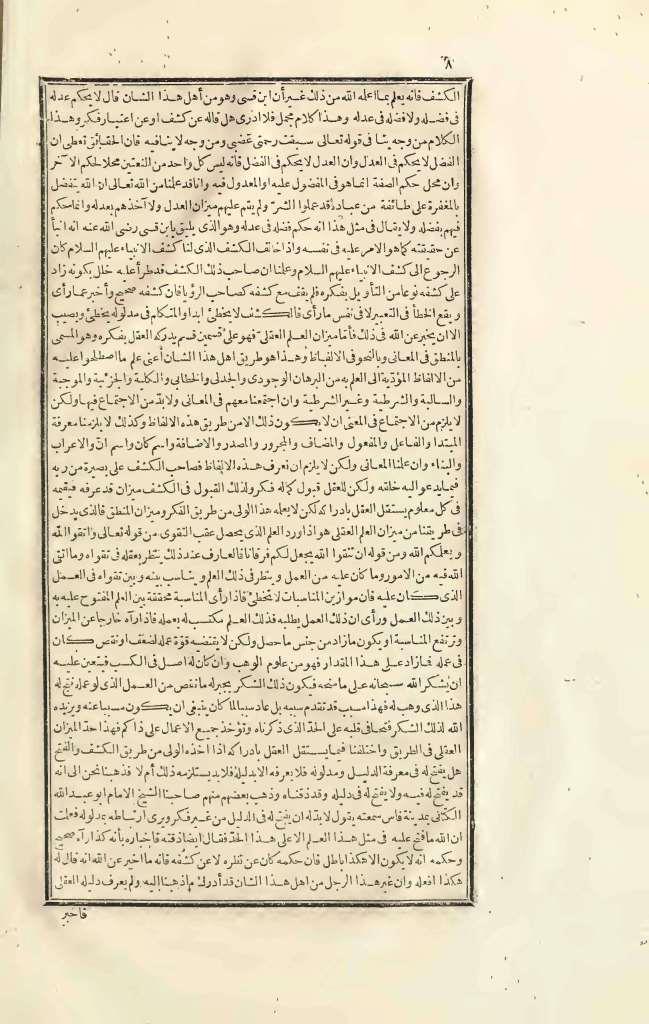 ٨
الكشف فانه يعلم بما اعلمه الله من ذلك غير أن ابن قسى وهو من أهل هذا الشان قال لا يحكم عدله
فى فضله ولا فضله فى عدله وهذا كلام مجمل فلا ادرى هل قاله عن كشف او عن اعتبار فكر وهذا
الكلام من وجه ينا فى قوله تعالى سبقت رحمتى غضبى ومن وجه لا ينافيه فان الحقائق تعطى ان
الفضل لا يحكم فى العدل وان العدل لا يحكم فى الفضل فانه ليس كل واحد من النعتين محلا لحكم الآخر
وان محل حكم الصفة انما هو فى المفضول عليه او المعدول فيه وانا قد علمنا من الله تعالى ان الله يتفضل
بالمغفرة على طائفة من عباده قد عملوا الشر ولم يتم عليهم ميزان العدل ولا آخذهم بعدله وانما حكم
فيهم بفضله ولا يقال فى مثل هذا انه حكم فضله فى عدله وهو الذى يليق بابن قسى رضى الله عنه انه انبأ
عن حقيقته كما هو الامر عليه فى نفسه واذا خالف الكشف الذى لنا كشف الانبياء عليهم السلام كان
الرجوع الى كشف الانبياء عليهم السلام وعلمنا ان صاحب ذلك الكشف قد طرأ عليه خلل بكونه زاد
على كشفه نوعا من التأويل بفكره فلم يقف مع كشفه كصاحب الرؤيا فان كشفه صحيح وأخبر عما رأى
ويقع الخطأ فى التعبير لا فى نفس ما رأى فالكشف لا يخطئ ابدا والمتكلم فى مدلوله يخطئ ويصيب
الا ان يخبر عن الله فى ذلك فأما ميزان العلم العقلى فهو على قسمين قسم يدركه العقل بفكره وهو المسمى
بالمنطق فى المعانى وبالنحو فى الالفاظ وهذا هو طريق اهل هذا الشان أعنى علم ما اصطلحوا عليه
من الالفاظ المؤدّية الى العلم به من البرهان الوجودى والجدلى والخطابى والكلية والجزئية والموجبة
والسالبة والشرطية وغير الشرطية وان اجتمعنا معهم فى المعانى ولا بدّ من الاجتماع فيها ولكن
لا يلزم من الاجتماع فى المعنى ان لا يكون ذلك الا من طريق هذه الالفاظ وكذلك لا يلزمنا معرفة
المبتدا والفاعل والمفعول والمضاف والمجرور والمصدر والاضافة واسم كان واسم انّ والاعراب
والبناء وان علمنا المعانى ولكن لا يلزم ان نعرف هذه الالفاظ فصاحب الكشف على بصيرة من ربه
فيما يدعو اليه خلقه ولكن للعقل قبول كما له فكر ولذلك القبول فى الكشف ميزان قد عرفه فيقيمه
فى كل معلوم يستقل العقل بادراكه لكن لا يعلمه هذا الولى من طريق الفكر وميزان المنطق فالذى يدخل
فى طريقتنا من ميزان العلم العقلى هو اذا ورد العلم الذى يحصل عقيب التقوى من قوله تعالى واتقوا الله
ويعلمكم الله ومن قوله ان تتقوا الله يجعل لكم فرقانا فالعارف عند ذلك ينظر بعقله فى تقواه وما اتقى
الله فيه من الامور وما كان عليه من العمل وينظر فى ذلك العلم ويناسب بينه وبين تقواه فى العمل
الذى كان عليه فان موازين المناسبات لا تخطئ فاذا رأى المناسبة محققة بين العلم المفتوح عليه به
وبين ذلك العمل ورأى ان ذلك العمل يطلبه فذلك العلم مكتسب له بعمله فاذا رآه خارجا عن الميزان
وترتفع المناسبة او يكون ما زاد من جنس ما حصل ولكن لا يقتضيه قوّة عمله لضعف او نقص كان
فى عمله فما زاد على هذا المقدار فهو من علوم الوهب وان كان له اصل فى الكسب فيتعين عليه
ان يشكر الله سبحانه على ما منحه فيكون ذلك الشكر يجبر له ما نقص من العمل الذى لو عمله فتح له
هذا الذى وهب له فهذا سبب قد تقدم سببه بل عاد سببا لما كان ينبغى ان يكون مسببا عنه ويزيده
الله لذلك الشكر فتحا فى قلبه على الحدّ الذى ذكرناه وتؤخذ جميع الاعمال على ذاكم فهذا حدّ الميزان
العقلى فى الطريق واختلفنا فيما يستقل العقل بادراكه اذا اخذه الولى من طريق الكشف والفتح
هل يفتح له فى معرفة الدليل ومدلوله فلا يعرفه الا بدليله فلا بدّ يستلزمه ذلك أم لا فذهبنا نحن الى انه
قد يفتح له فيه ولا يفتح له فى دليله وقد ذقناه وذهب بعضهم منهم صاحبنا الشيخ الامام ابو عبد الله
الكتانى بمدينة فاس سمعته يقول لا بدّ له ان يفتح له فى الدليل من غير فكر ويرى ارتباطه بمدلوله فعلمت
ان الله ما فتح عليه فى مثل هذا العلم الا على هذا الحدّ فقال ايضا ذقته فاخباره بأنه كذا رآه صحيح
وحكمه انه لا يكون الا هكذا باطل فان حكمه كان عن نظره لا عن كشفه فانه ما اخبر عن الله انه قال له
هكذا افعله وان غير هذا الرجل من اهل هذا الشان قد أدرك ما ذهبنا اليه ولم يعرف دليله العقلى
فاخبر